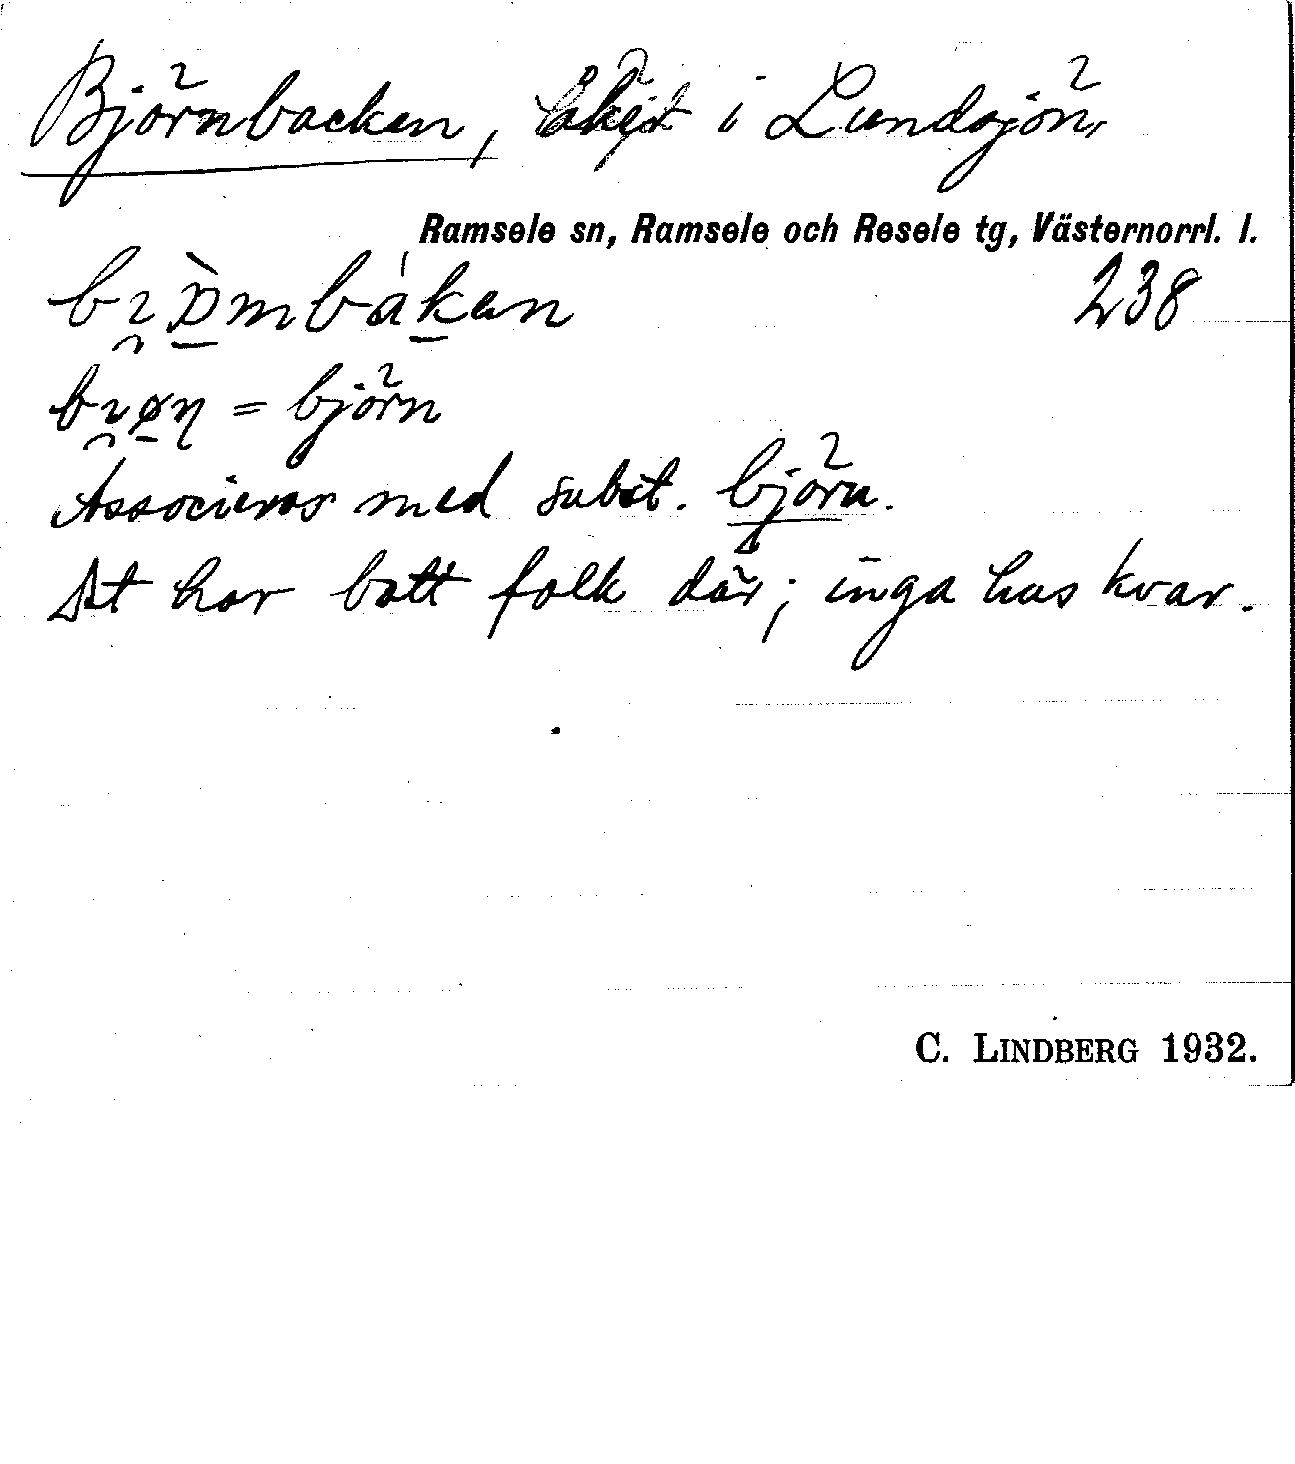 Björnbacken, i Lundsjön,
Ramsele sn, Ramsele och Resele tg, Västernorrl. l.
238
= björn
Associeras med subst. björn.
Det har bott folk där; inga hus kvar.
C. LINDBERG 1932.